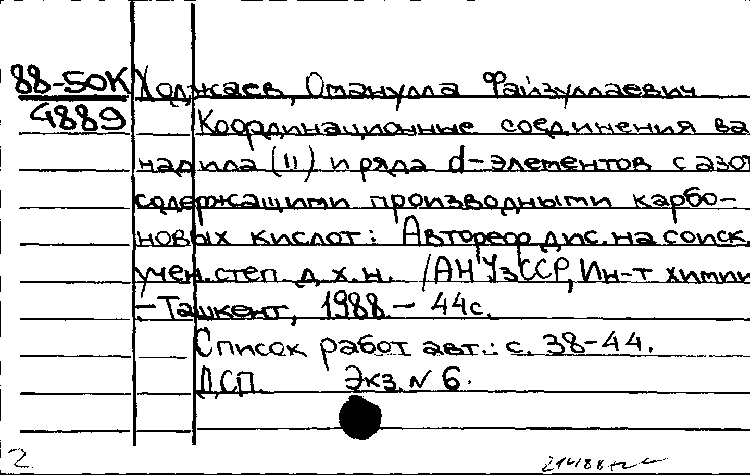 88-50К
4889
Ходжаев, Оманулла Файзуллаевич
Координационные соединения ва
надила (II) и ряда d-элементов с азот
содержащими производными карбо-
новых кислот: Автореф дис. на соиск
учен. степ. д. х. н. /АН УзССР, Ин-т химии
- Ташкент, 1988 - 44с.
Список работ авт.: с. 38-44.
ДСП. Экз. N 6.
2